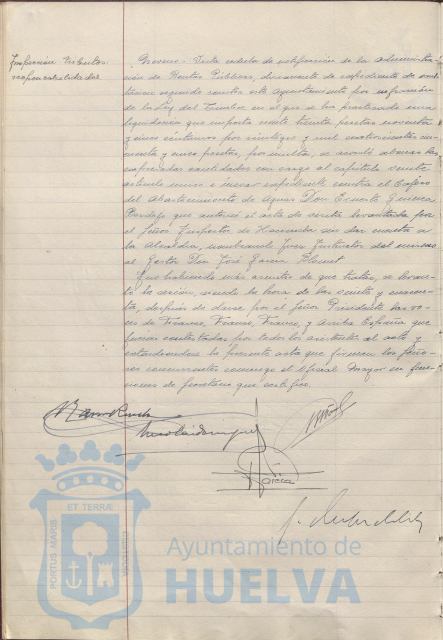 Inspección Tributos
responsabilidad
Noveno.- Vista cédula de notificación de la Administra-
ción de Rentas Públicas, dimanante de expediente de
seguido contra este Ayuntamiento por infracción
de la Ley del Timbre en el que se ha practicado una
liquidación que importa treinta pesetas noventa
y cinco céntimos por reintegro y mil cuatrocientas cin-
cuenta y cinco pesetas, por multa, se acordó abonar las
expresadas cantidades con cargo al capítulo veinte
artículo único e incoar expediente contra el
del Abastecimiento de Aguas Don Ernesto
que autorizó el acta de visita levantada por
el Señor Inspector de Hacienda sin dar cuenta a
la Alcaldía, nombrando Juez Instructor del mismo
al Gestor Don José García
Y no habiendo más asuntos de que tratar, se levan-
tó la sesión, siendo la hora de las veinte y cincuen-
ta, después de darse por el Señor Presidente las vo-
ces de Franco, Franco, Franco, y Arriba España que
fueron contestadas por todos los asistentes al acto y
extendiéndose la presente acta que firman los Seño-
res concurrentes conmigo el Oficial Mayor en fun-
ciones de Secretario que certifico.
García
PORTUS MARIS
ET TERRÆ
CUSTODIA
Ayuntamiento de
HUELVA